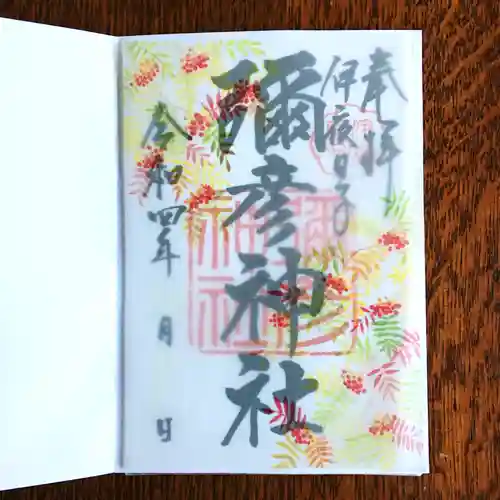 奉拝
伊夜日子
彌彦神社
令和四年 月 日
彌彦神社